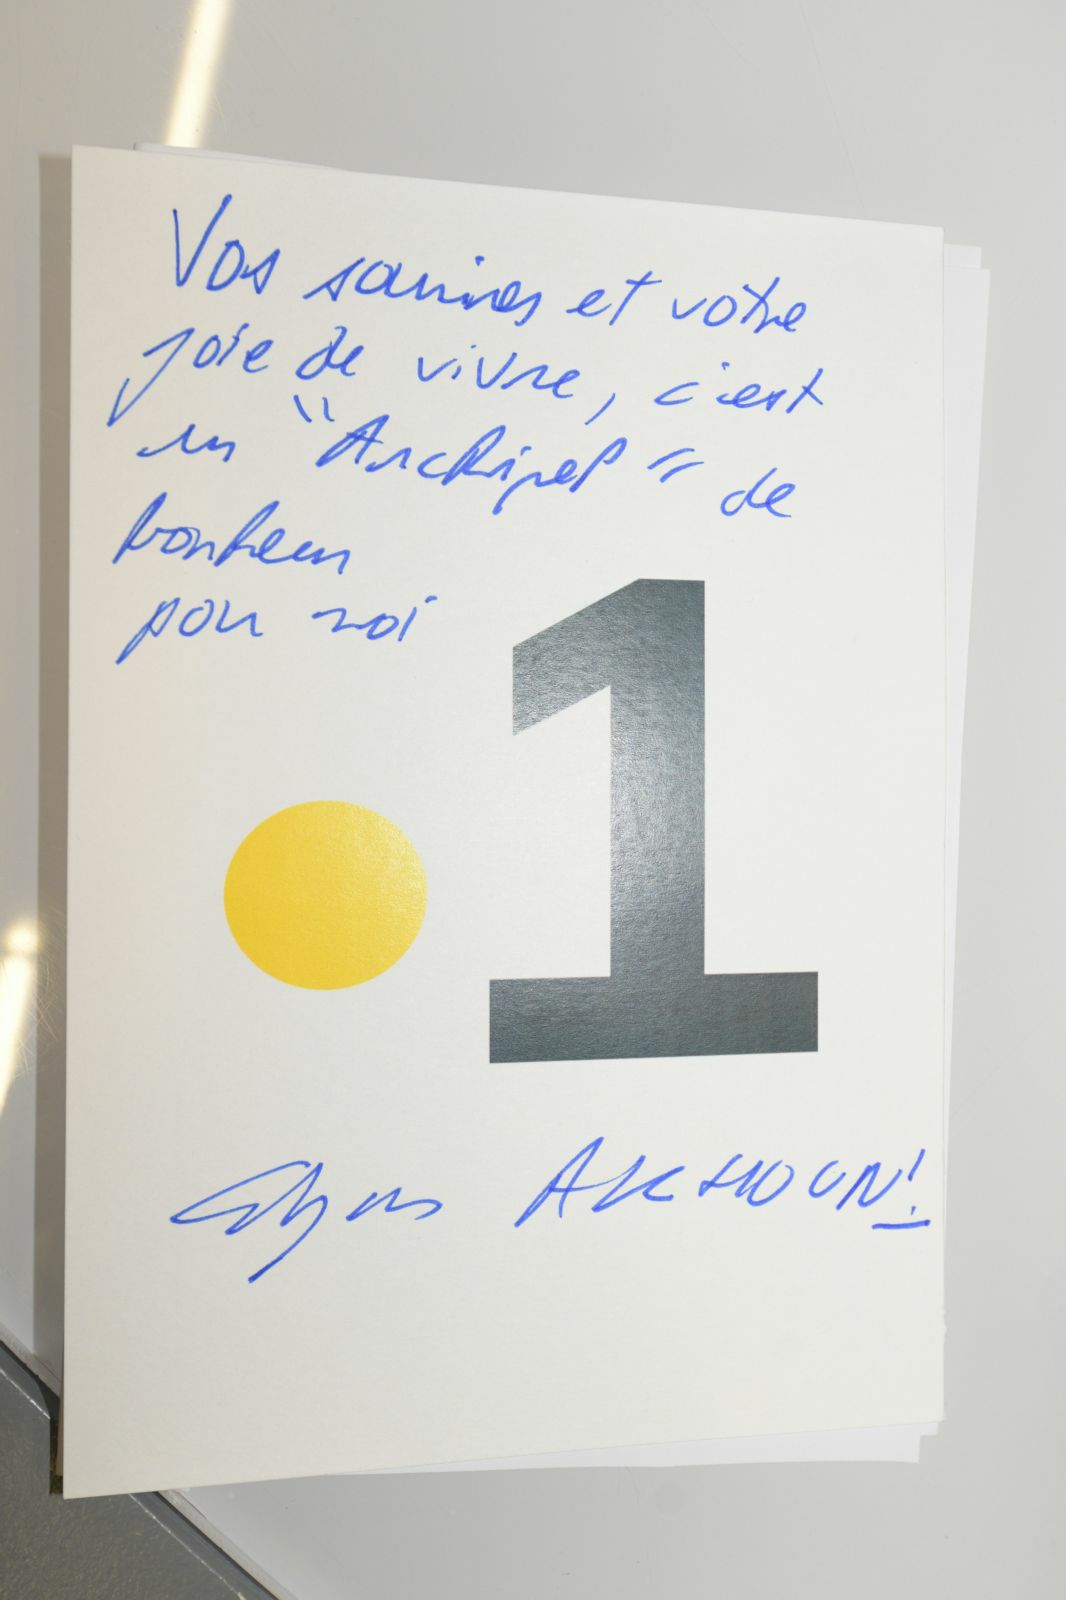 Vos sourires et votre
joie de vivre, c'est
un "Archipel" de
bonheur
pour moi
1
AKHOUN!